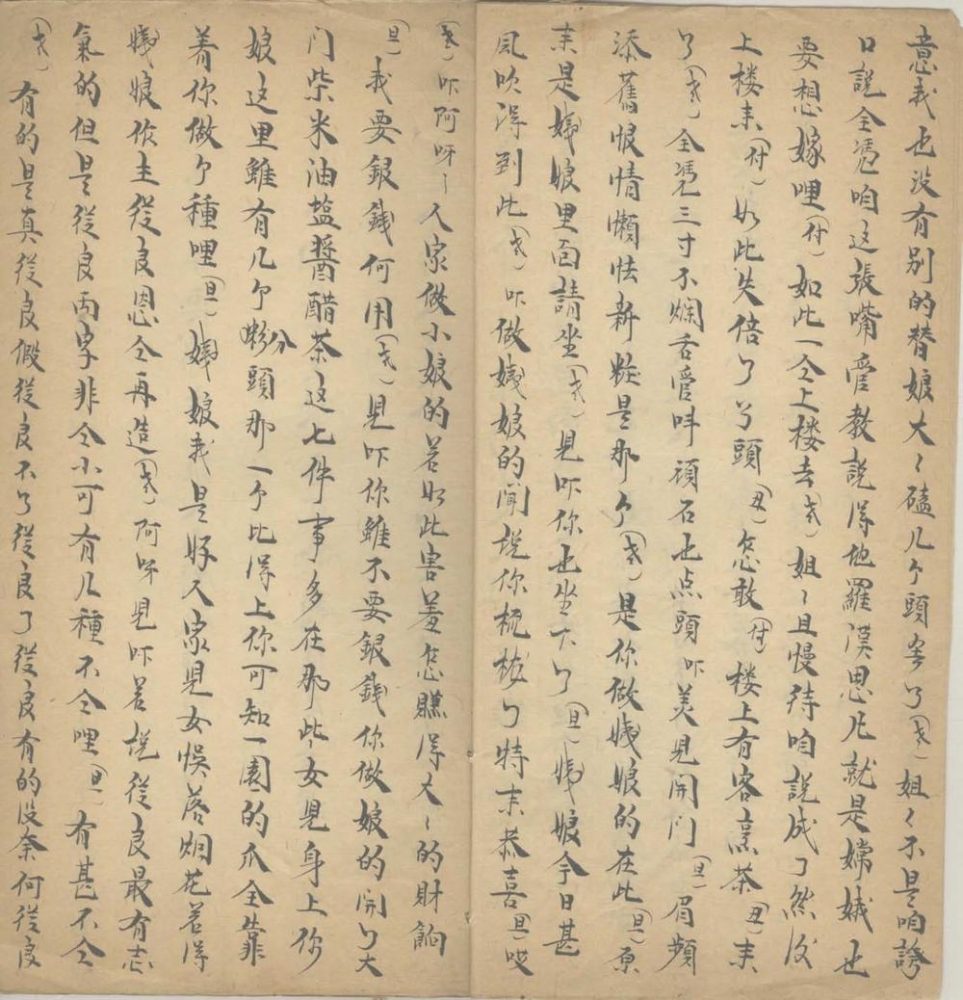 意我也没有别的替娘大〻磕几个頭罢了(老)姐〻不是咱誇
口説全凴咱这張嘴管教説得他羅漢思凡就是嫦娥也
要想嫁哩(付)如此一仝上楼去(老)姐〻且慢待咱説成了然后
上楼耒(付)如此失倍了丫頭(丑)怎敢(付)楼上有客烹茶(丑)耒
了(老)全凴三寸不爛舌管呌頑石也点頭吓美児開门(旦)眉頻
添舊恨情懶怯新粧是那个(老)是你做姨娘的在此(旦)原
耒是姨娘里面請坐(老)児吓你也坐下了(旦)姨娘今日甚
風吹得到此(老)吓做姨娘的闻説你梳栊了特耒恭喜(旦)哎
(老)吓阿呀〻人家做小娘的若如此害羞怎賺得大〻的財餉
(旦)我要銀錢何用(老)児吓你雖不要銀錢你做娘的開了大
门柴米油盐醬醋茶这七件事多在那些女児身上你
娘这里雖有几个粉頭那一个比得上你可知一園的瓜全靠
着你做个種哩(旦)姨娘我是好人家児女悮落烟花若得
姨娘作主從良恩仝再造(老)阿呀児吓若説從良最有志
氣的但是從良两字非仝小可有几種不仝哩(旦)有甚不仝
(老)有的是真從良假從良不了從良了從良有的没奈何從良